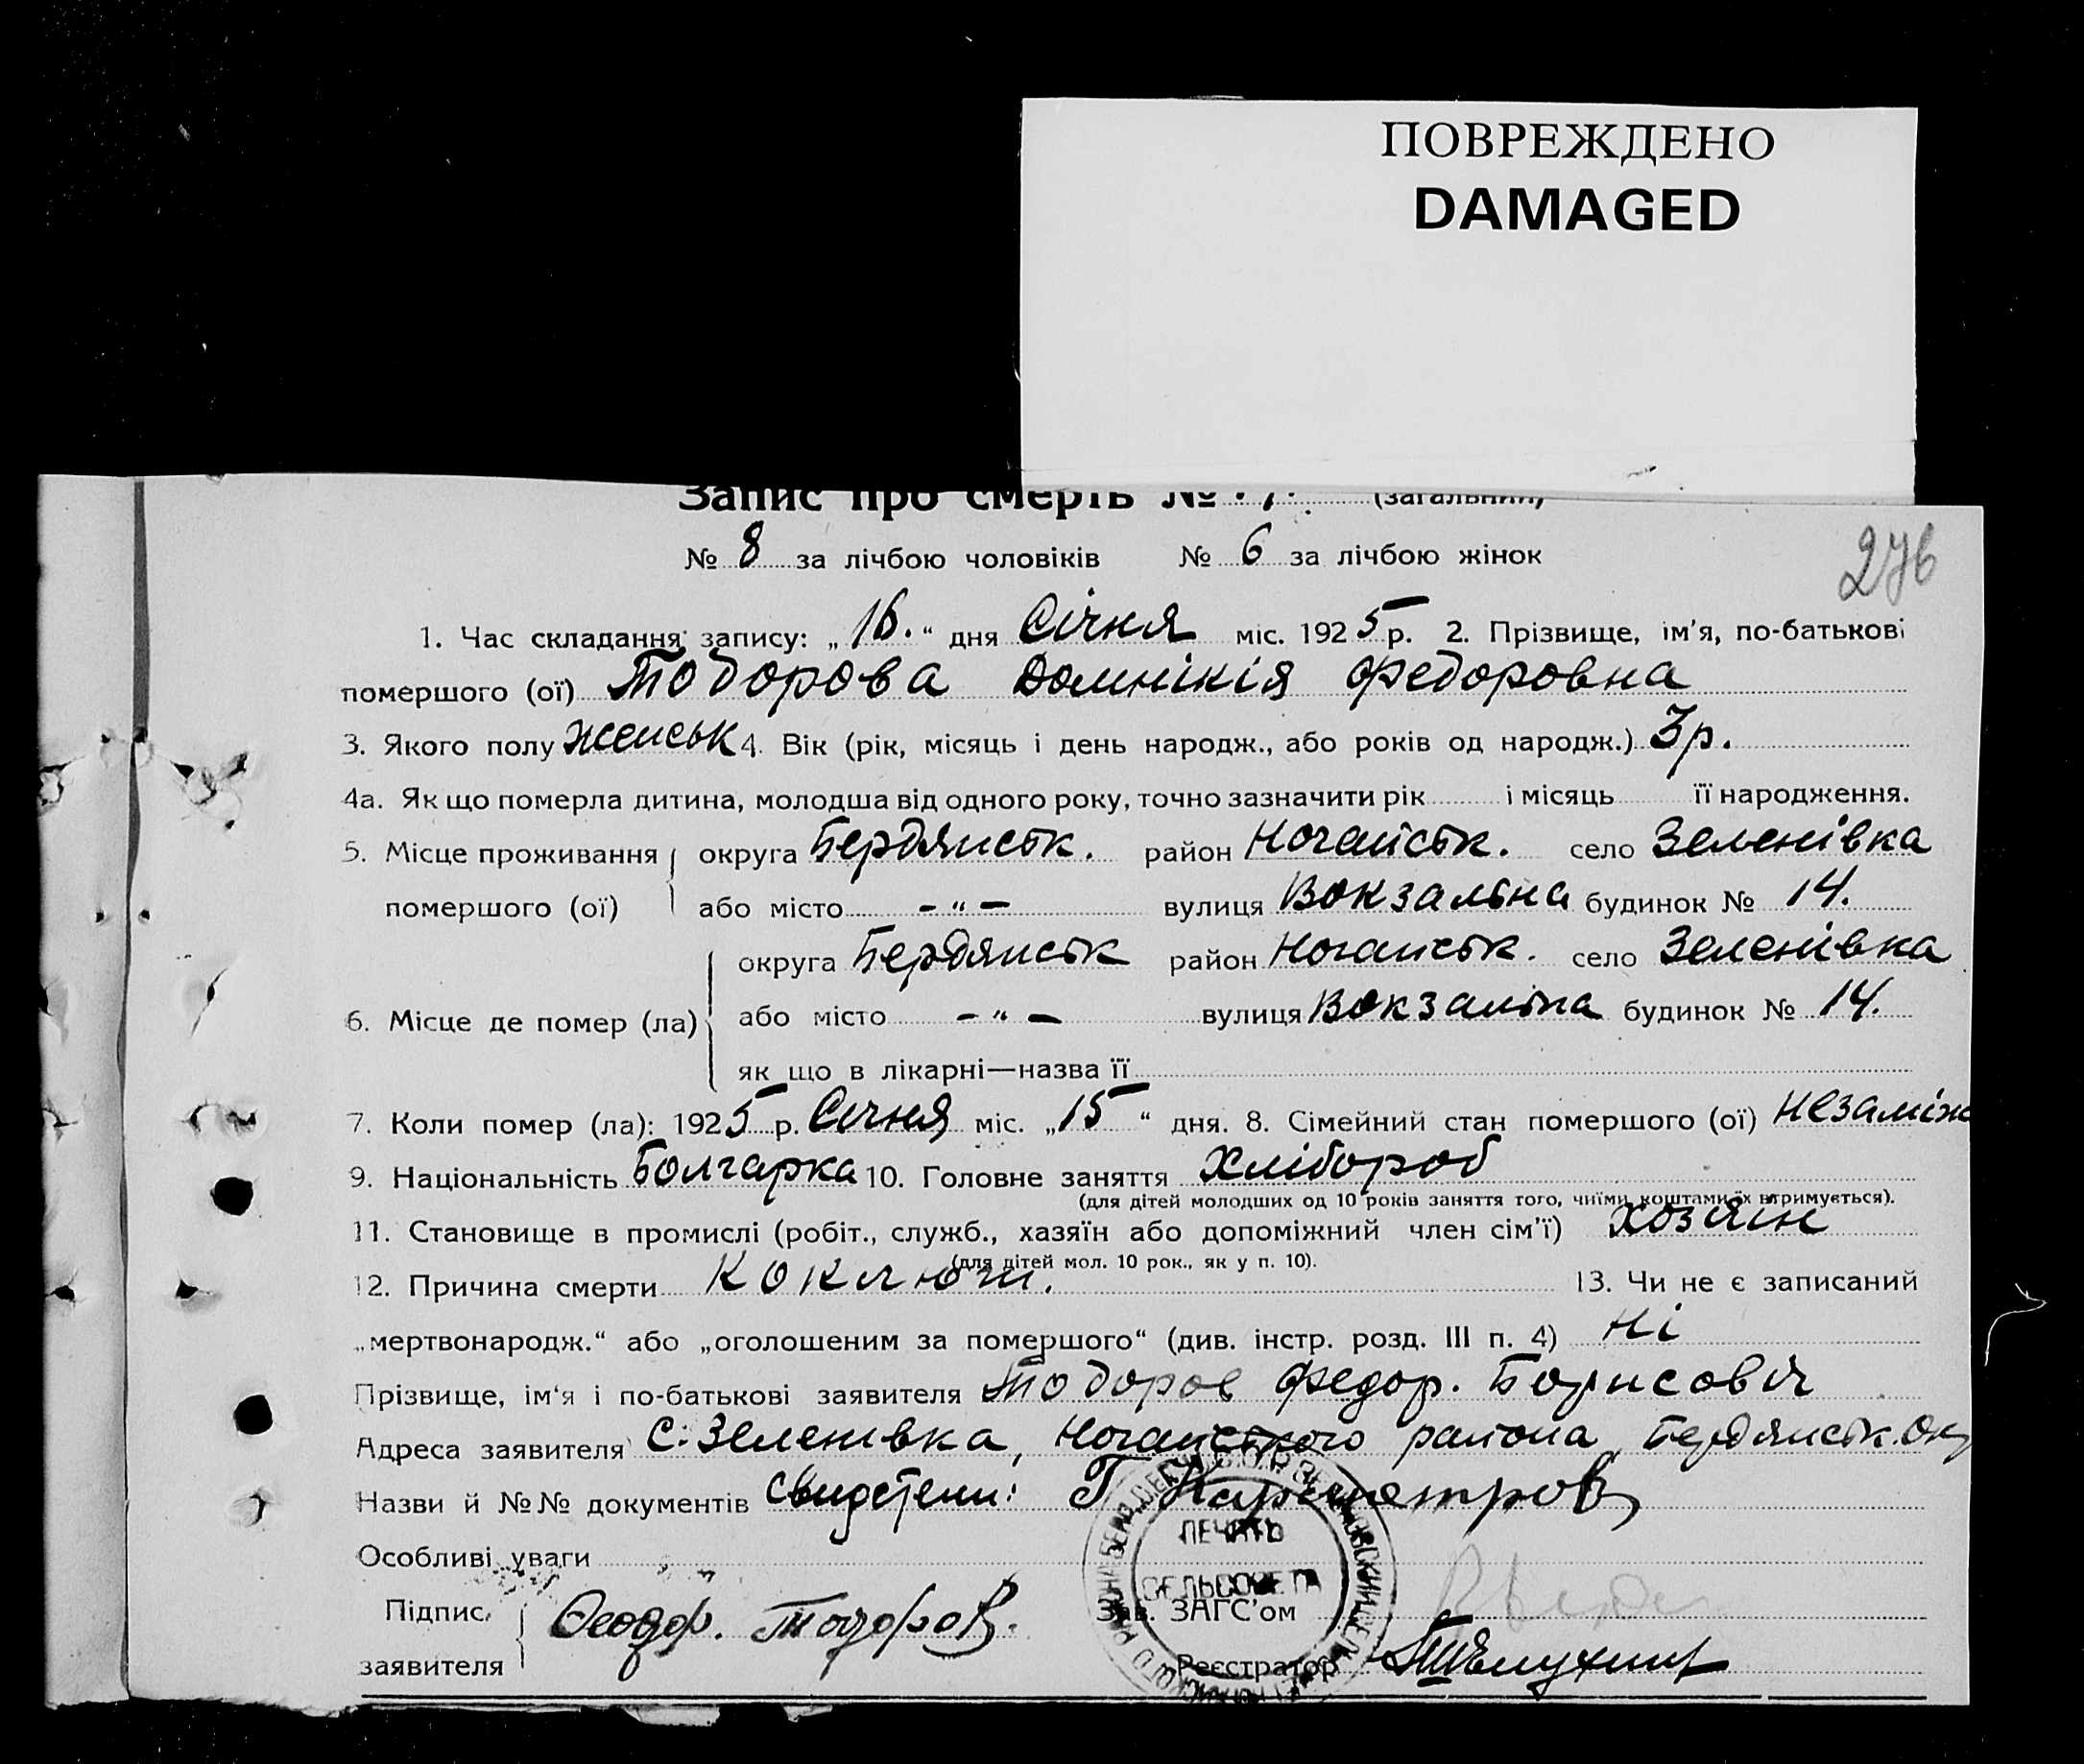 ПОВРЕЖДЕНО
DAMAGED
Запис про смерть № (загальний)
276
№ 8 за лічбою чоловіків № 6 за лічбою жінок
1. Час складання запису: „16.“ дня Січня міс. 1925 р. 2. Прізвище, ім'я, по-батькові
помершого (ої) Тодорова Домнікія Федоровна
3. Якого полу женськ 4. Вік (рік, місяць і день народж., або років од народж.) 3 р.
4а. Як що померла дитина, молодша від одного року, точно зазначити рік і місяць її народження.
5. Місце проживання округа Бердянськ. район Ногайськ. село Зеленівка
помершого (ої) або місто -"- вулиця Вокзальна будинок № 14.
округа Бердянськ район Ногайськ. село Зеленівка
6. Місце де помер (ла) або місто -"- вулиця Вокзальна будинок № 14.
як що в лікарні—назва її
7. Коли помер (ла): 1925 р. Січня міс. „15“ дня. 8. Сімейний стан помершого (ої) незаміж
9. Національність Болгарка 10. Головне заняття Хлібороб
(для дітей молодших од 10 років заняття того, чиїми коштами їх втримується).
11. Становище в промислі (робіт., служб., хазяїн або допоміжний член сім'ї) хозяін
(для дітей мол. 10 рок., як у п. 10).
12. Причина смерти Коклюш. 13. Чи не є записаний
„мертвонародж.“ або „оголошеним за помершого“ (див. інстр. розд. III п. 4) Ні
Прізвище, ім'я і по-батькові заявителя Тодоров Федор. Борисовіч
Адреса заявителя С. Зеленівка, Ногайського района Бердянськ. ок
Назви й №№ документів Свидетели: Г
Особливі уваги
ПЕЧАТЬ
СЕЛЬСОВЕТА
Підпис Феодор. Тодоров. Зав. ЗАГС'ом
заявителя Реєстратор